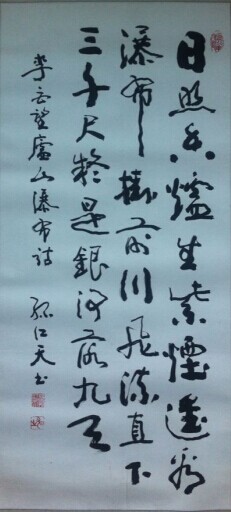 日照香炉生紫煙遥看
瀑布掛前川飛流直下
三千尺疑是銀河落九天
李白望廬山瀑布詩
江天书